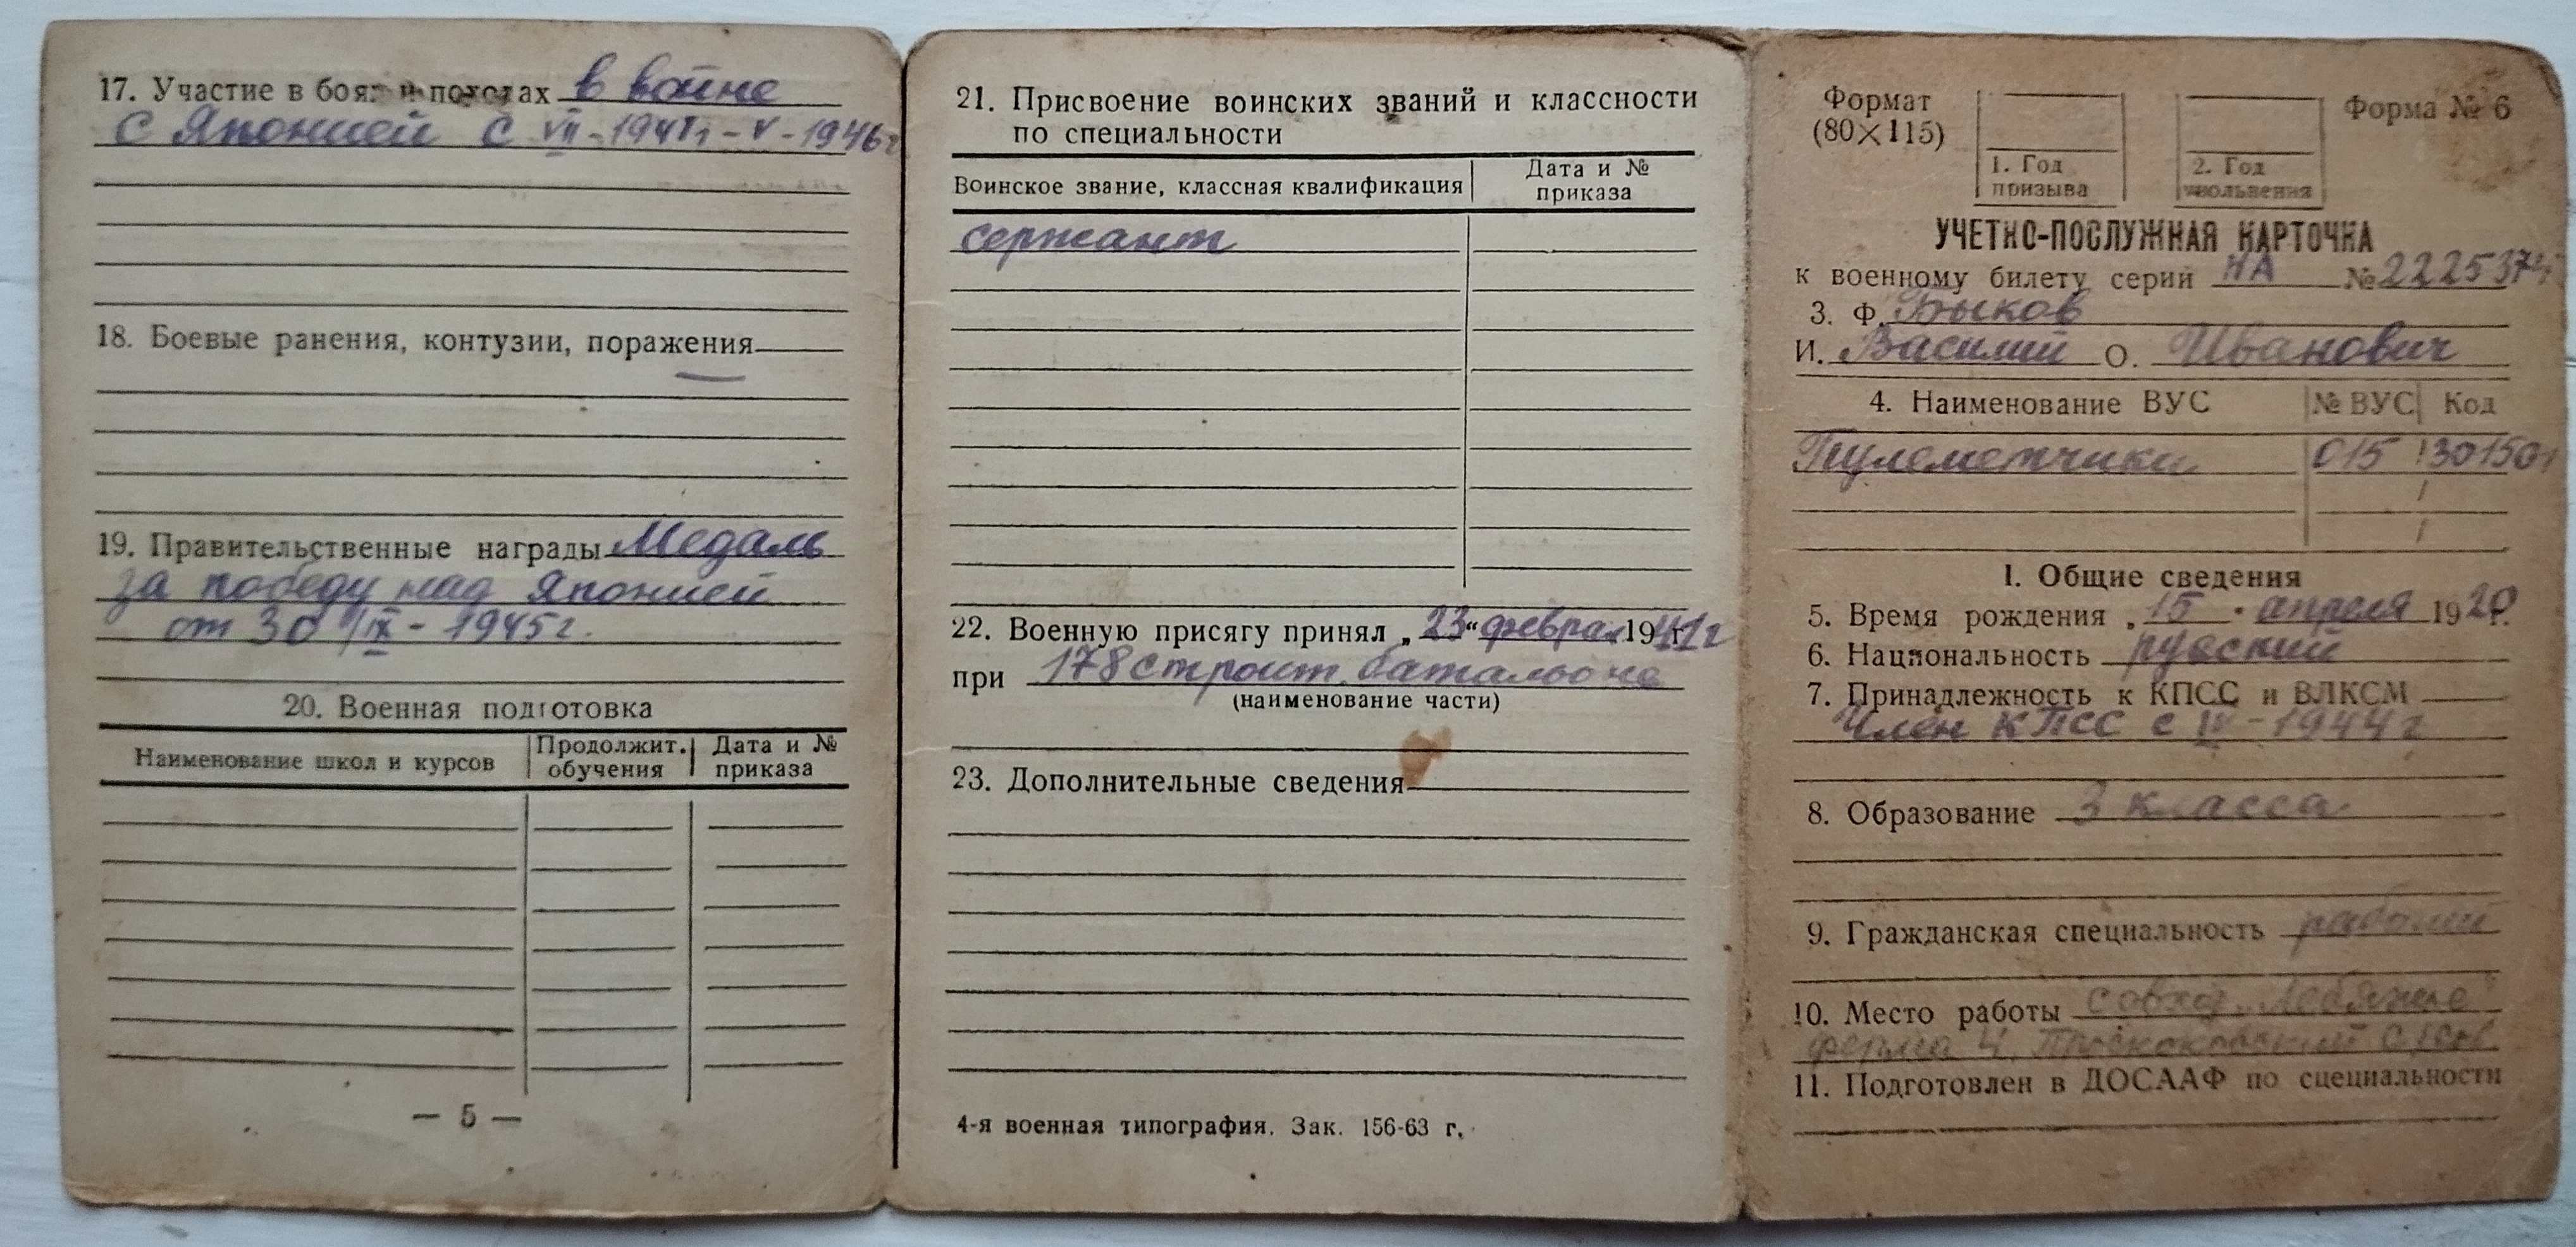 17. Участие в боях и походах в войне
с Японией с VII-1945г-V-1946г
18. Боевые ранения, контузии, поражения
—
19. Правительственные награды Медаль
за победу над Японией
от 30/IX-1945г.
20. Военная подготовка
Наименование школ и курсов
Продолжит. обучения
Дата и № приказа
— 5 —
21. Присвоение воинских званий и классности
по специальности
Воинское звание, классная квалификация
Дата и № приказа
сержант
22. Военную присягу принял „23“ феврал 1941г
при 178 строит. батальоне
(наименование части)
23. Дополнительные сведения
4-я военная типография. Зак. 156-63 г.
Формат
(80×115)
1. Год
призыва
2. Год
увольнения
Форма № 6
УЧЕТНО-ПОСЛУЖНАЯ КАРТОЧКА
к военному билету серии НА № 2225374
3. Ф. Быков
И. Василий О. Иванович
4. Наименование ВУС № ВУС Код
Пулеметчики 015
I. Общие сведения
5. Время рождения „15 " апреля 1920г.
6. Национальность русский
7. Принадлежность к КПСС и ВЛКСМ
Член КПСС с IV-1944г
8. Образование 3 класса
9. Гражданская специальность рабочий
10. Место работы совхоз „Лебяжье"
ферма 4,
11. Подготовлен в ДОСААФ по специальности